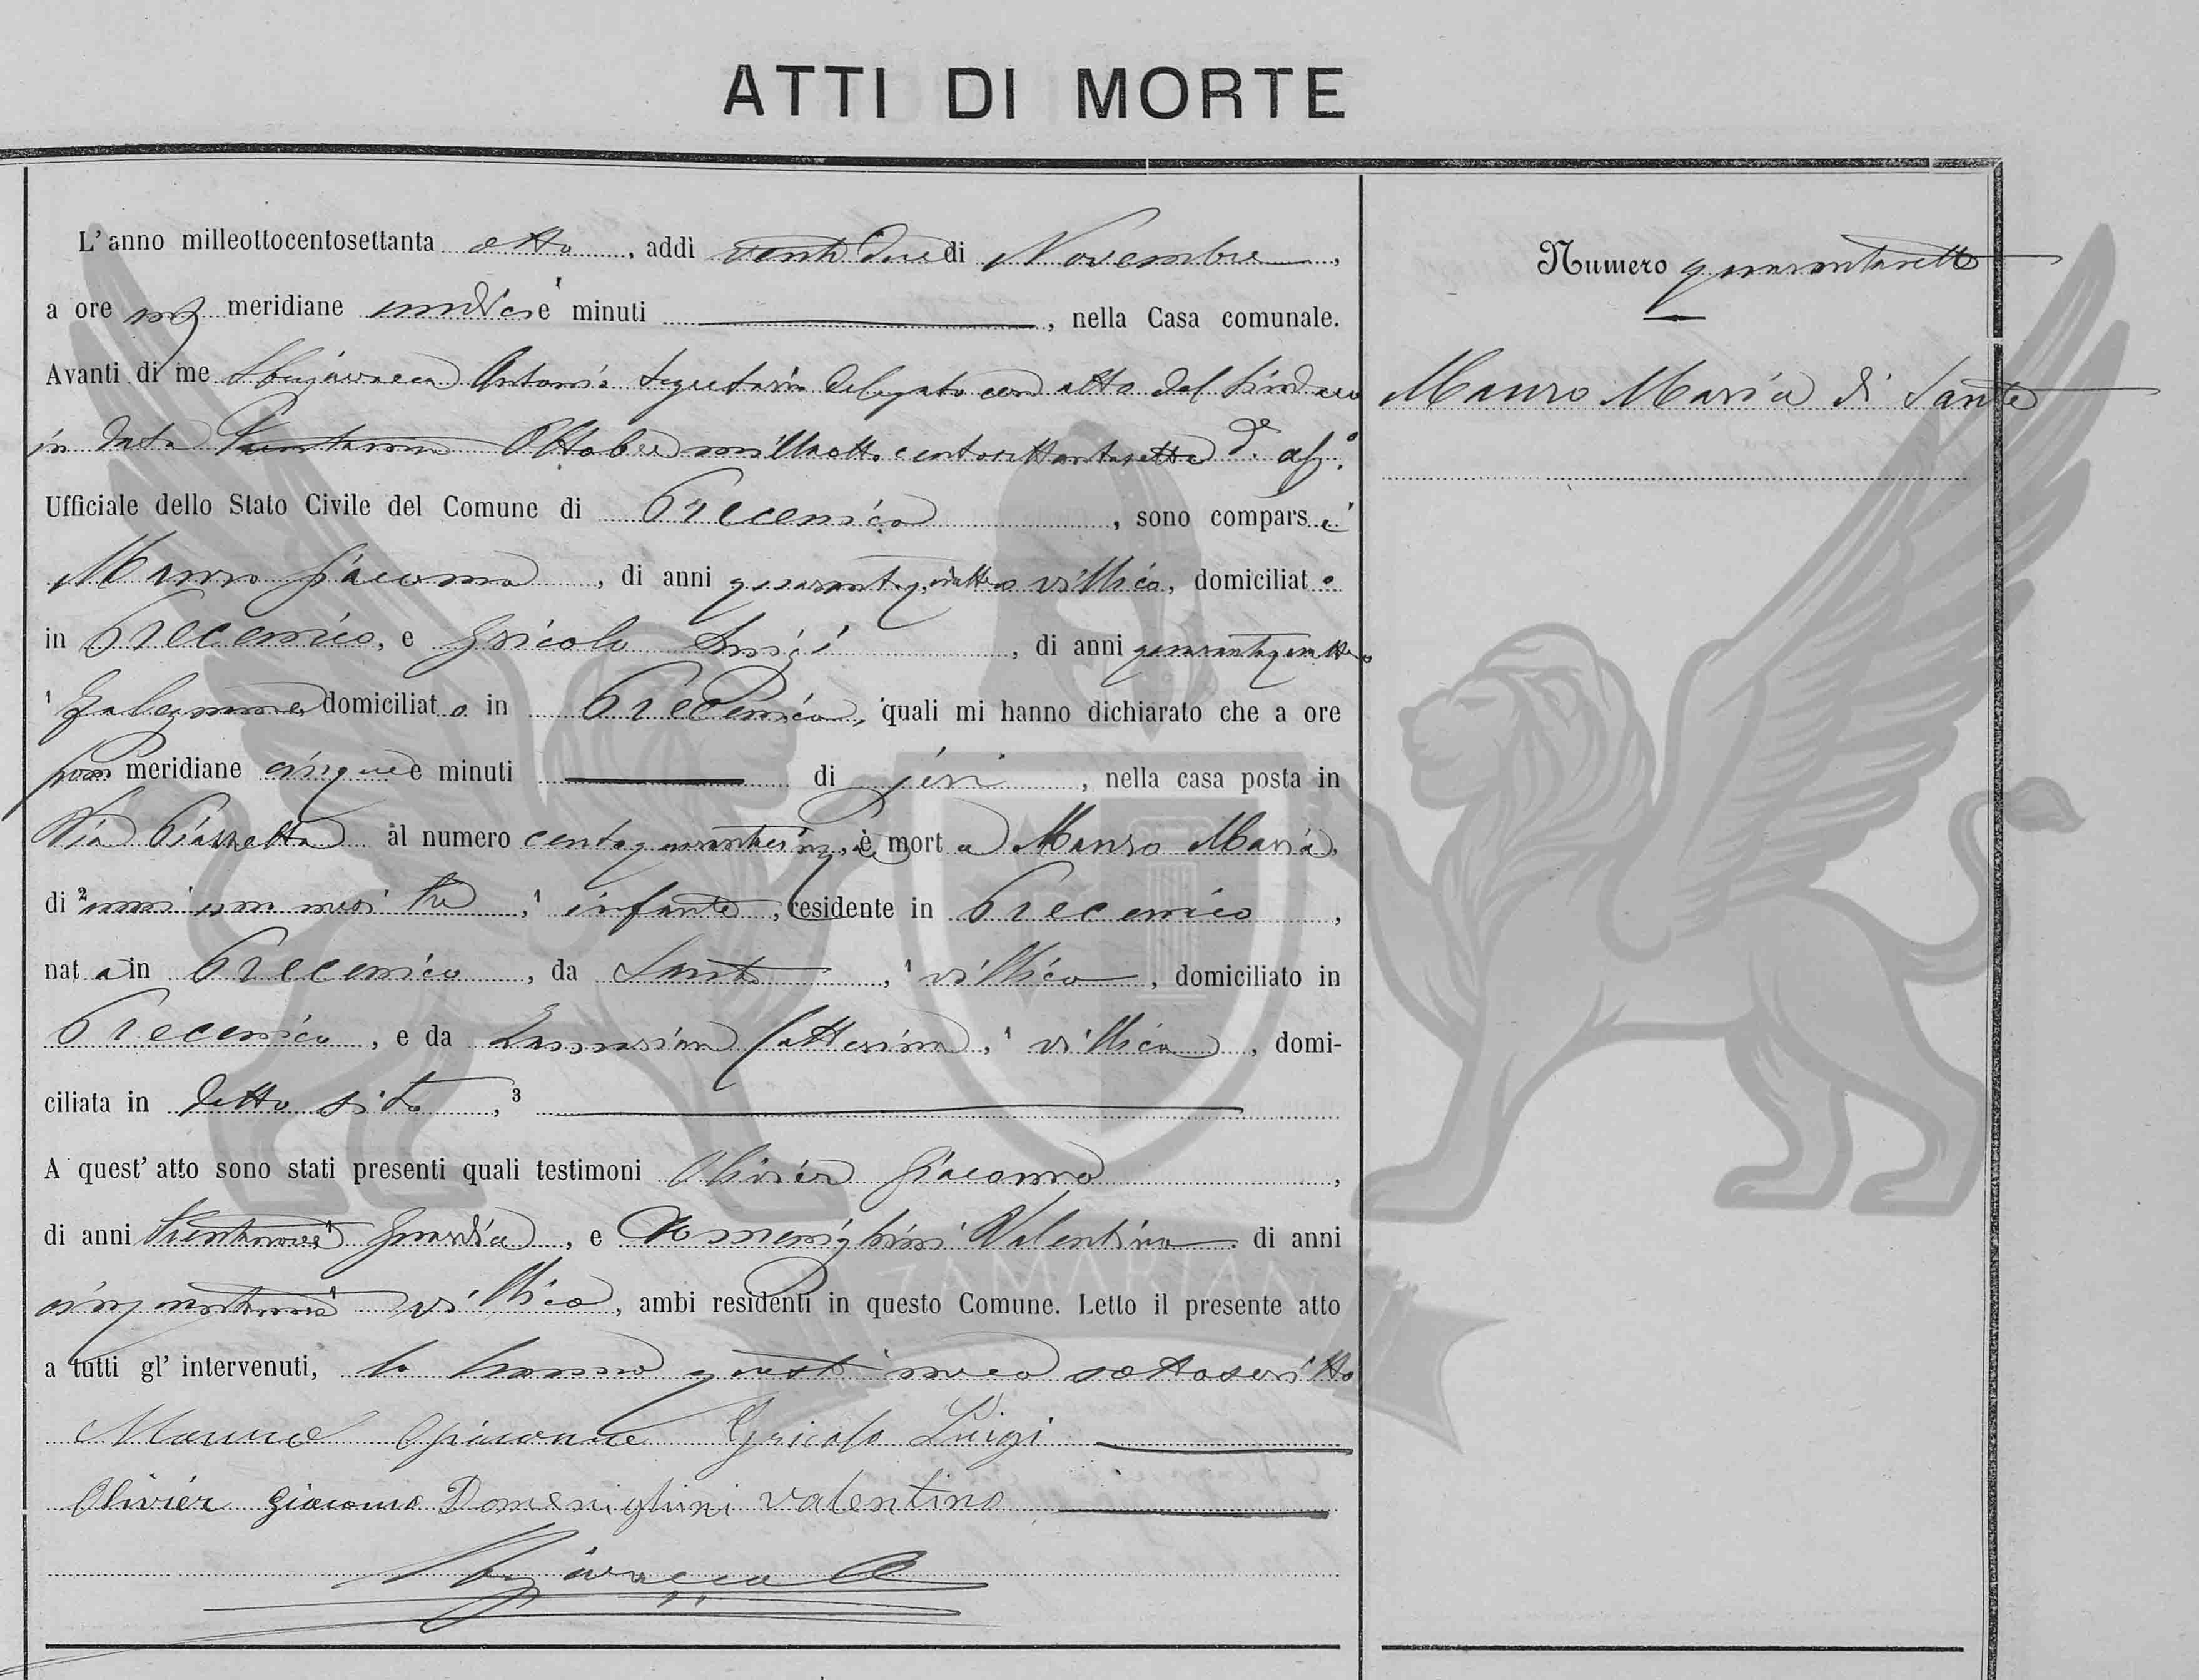 ATTI DI MORTE
L'anno milleottocentosettanta otto, addì venti due di Novembre,
a ore ant meridiane undici e minuti, nella Casa comunale.
Avanti di me Antonio Segretario Delegato con atto del Sindaco
in data Ottobre milleottocentosettantasette
Ufficiale dello Stato Civile del Comune di Precenico, sono comparsi
Mauro Giacomo, di anni quarantaquattro villico, domiciliato
in Precenico, e Gricolo Luigi, di anni quarantaquattro
1 Falegname domiciliato in Precenico, quali mi hanno dichiarato che a ore
pom meridiane cinque e minuti di jeri, nella casa posta in
Via Piazzetta al numero centoquarantacinque, è morta Mauro Maria,
di 2 anni un mesi tre, 1 infante, residente in Precenico,
nata in Precenico, da Sante, 1 villico, domiciliato in
Precenico, e da Catterina, 1 villica, domi-
ciliata in detto sito, 3
A quest' atto sono stati presenti quali testimoni Olivier Giacomo,
di anni trentanove Guardia, e Domenighini Valentino di anni
villico, ambi residenti in questo Comune. Letto il presente atto
a tutti gl' intervenuti, lo hanno questi meco sottoscritto
Mauro Giacomo Gricolo Luigi
Olivier giacomo Domenighini valentino
Numero quarantasette
Mauro Maria di Sante
ZAMARIAN